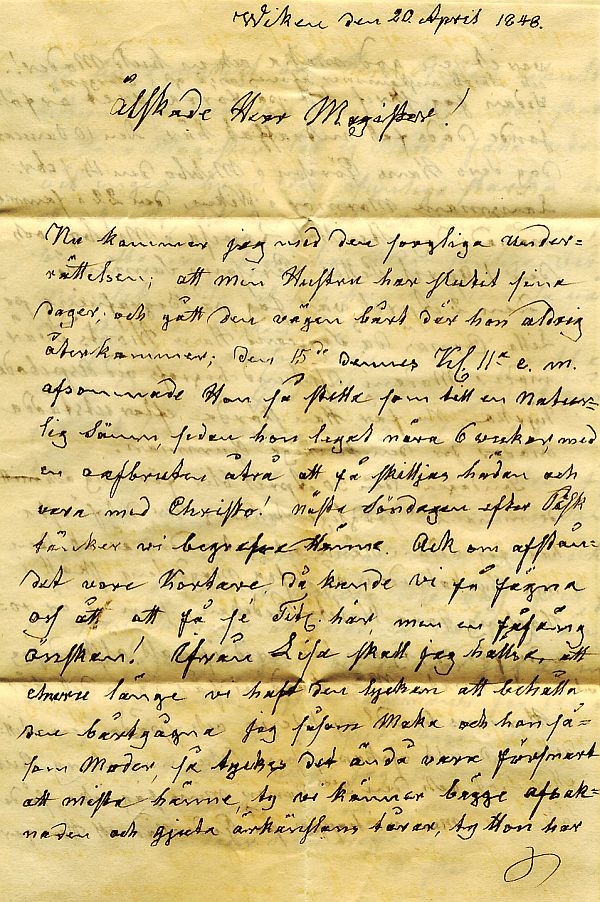 Wiken den 20 April 1848.
Älskade Herr Magister!
Nu kommer jag med den sorgliga under=
rättelsen; att min Hustru har slutit sina
dagar, och gått den vägen bårt där hon aldrig
återkommer; den 15de dennes Kl 11a e. m.
afsomnade Hon så stilla som till en natur=
lig sömn, sedan hon legat nära 6 wekor, med
en oafbruten åtrå att få skiljas hädan och
vara med Christo! nästa Söndagen efter Påsk
täncker vi begrafva Hänne. Ack om afstån=
det vore Kortare, då kunde vi få fägna
oss åt att få se Tit: här men en fåfäng
önskan! Ifrån Lisa skall jag hälsa, att
ehuru länge vi haft den lyckan att behålla
den bårtgågna jag såsom Maka och hon så=
som Moder, så tyckes det ändå vara försmart
att mista hänne, ty vi känner bägge afsak=
naden och gjuta ärkänslans tårar, ty Hon har